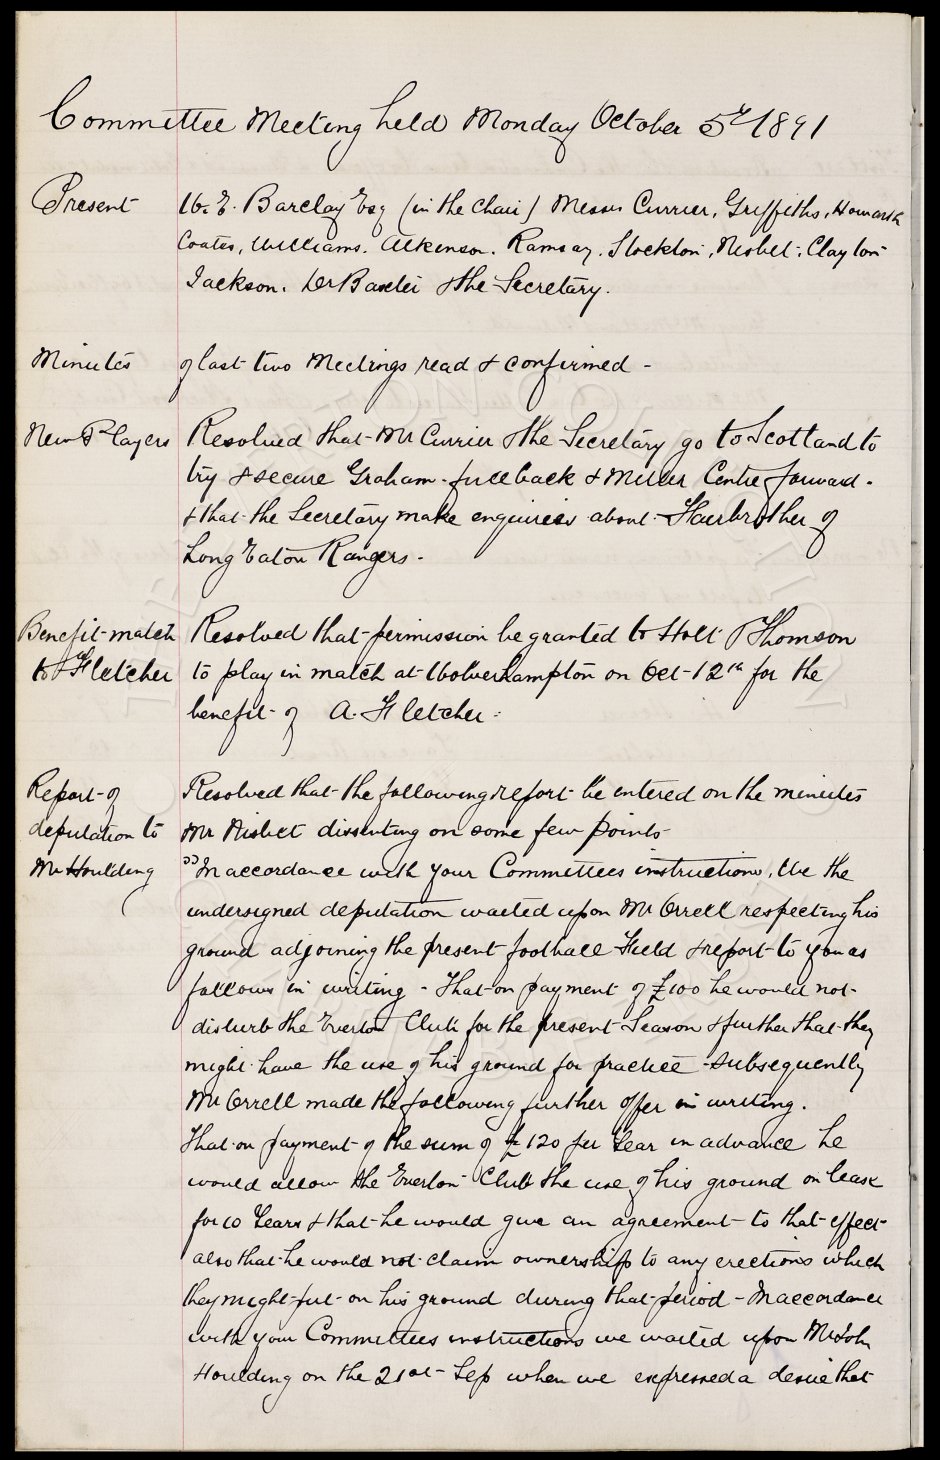 Committee Meeting held Monday October 5th 1891
Present W. E. Barclay Esq (in the Chair) Messrs Currier, Griffiths, Howarth
Coates, Williams. Atkinson. Ramsay, Stockton, Nisbet, Clayton
Jackson. Dr Baxter & the Secretary.
Minutes of last two Meetings read & confirmed -
New Players Resolved that Mr Currier & the Secretary go to Scotland to
try & secure Graham - full back & Miller Centre forward -
& that the Secretary make enquiries about Fairbrother of
Long Eaton Rangers -
Benefit match Resolved that permission be granted to Holt & Thomson
to A Fletcher to play in match at Wolverhampton on Oct 12th for the
benefit of A. Fletcher -
Report of Resolved that the following report be entered on the minutes
deputation to Mr Nisbet dissenting on some few points
Mr Houlding "In accordance with your Committees instructions, We the
undersigned deputation waited upon Mr Orrell respecting his
ground adjoining the present football Field & report to you as
follows in writing - That on payment of £100 he would not
disturb the Everton Club for the present Season & further that they
might have the use of his ground for practice - subsequently
Mr Orrell made the following further offer in writing.
That on payment of the sum of £120 per Year in advance he
would allow the Everton Club the use of his ground on lease
for 10 Years & that he would give an agreement to that effect
also that he would not claim ownership to any erections which
they might put on his ground during that period - In accordance
with your Committees instructions we waited upon Mr John
Houlding on the 21st Sep when we expressed a desire that